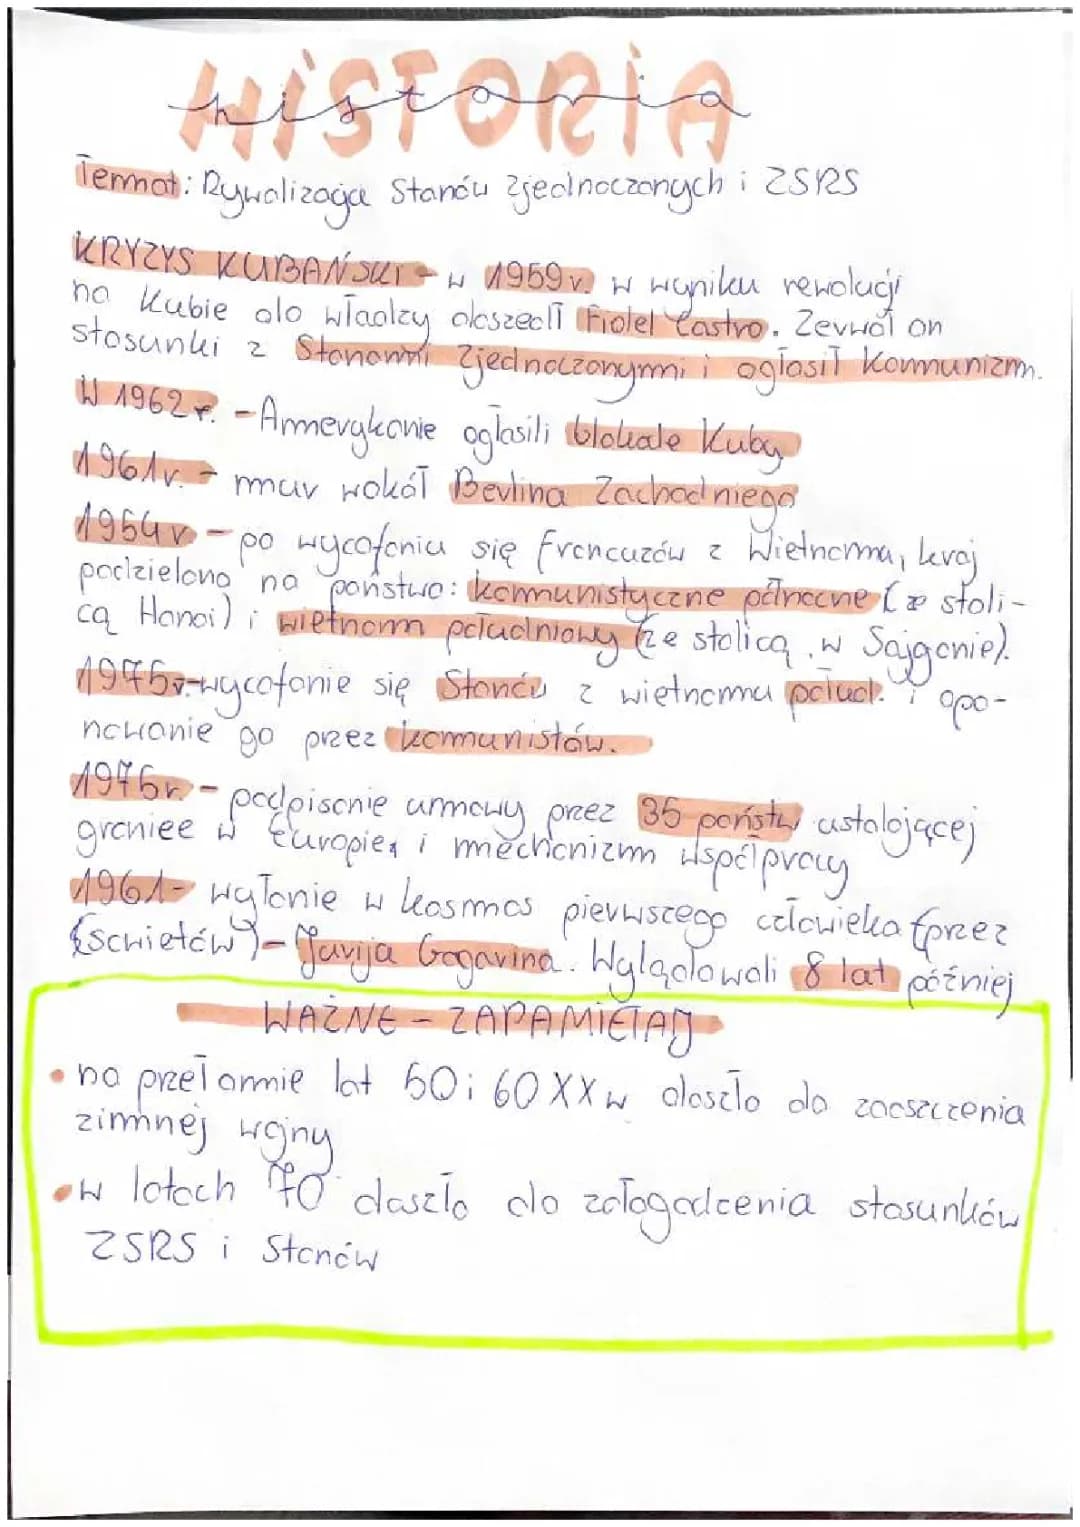 HISTORIA
historia
Temat: Rywalizacja Stanów Zjednoczonych i ZSRS
KRYZYS KUBAŃSKI - w 1959r. w wyniku rewolucji
na Kubie do władzy doszedł Fidel Castro. Zerwał on
stosunki z Stanami Zjednoczonymi i ogłosił komunizm.
W 1962r. - Amerykanie ogłosili blokade Kuby
1961r. - mur wokół Berlina Zachodniego
1954r - po wycofaniu się Francuzów z Wietnamu, kraj
podzielono na państwa: komunistyczne północne (ze stoli-
cą Hanoi) i wietnam południowy (ze stolicą w Sajgonie).
1975r-wycofanie się Stanów z wietnamu połud. i opa-
nowanie go przez komunistów.
1975r. - podpisanie umowy przez 35 państw ustalającej
graniee w Europie, i mechanizm współpracy
1961- wysłanie w kosmos pierwszego człowieka (przez
(Sowietów) - Jurija Gagarina. Wylądowali 8 lat później
WAŻNE - ZAPAMIĘTAJ
• na przełomie lat 50 i 60 XX w doszło do zaoszczenia
zimnej wojny
• w latach 70 doszło do załogodzenia stosunków
ZSRS i Stanów